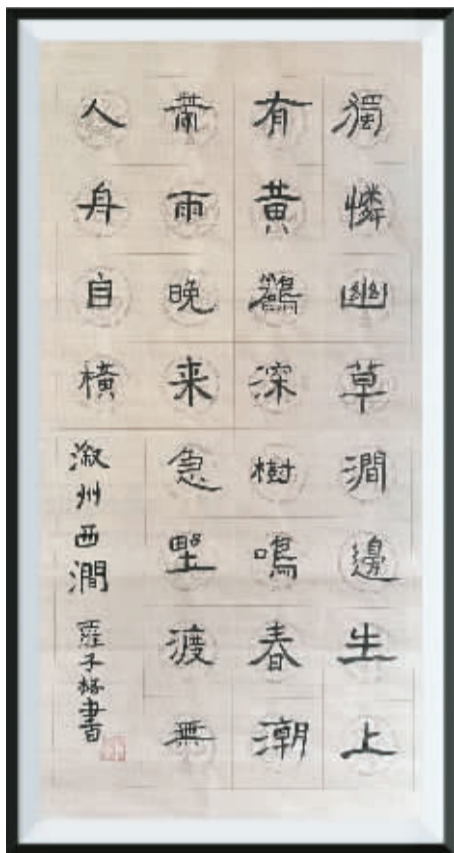 獨憐幽草澗邊生上
有黃鸝深樹鳴春潮
帶雨晚来急野渡無
人舟自橫
溆州西澗
子書